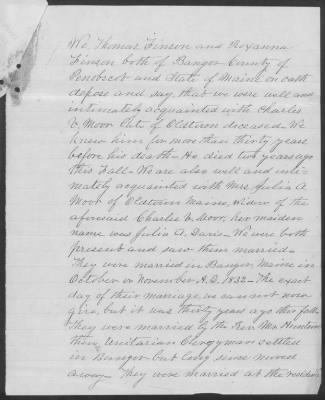 We, Thomas Finson and Roxanna
Finson both of Bangor County of
Penobscot and State of Maine on oath
depose and say, that we were well and
intimately acquainted with Charles
V. Moor late of Oldtown deceased - We
knew him for more than thirty years
before his death - He died two years ago
this Fall - We are also well and inti-
mately acquainted with Mrs Julia A
Moor of Oldtown Maine, widow of the
aforesaid Charles V. Moor, her maiden
name was Julia A. Davis - We were both
present and saw them married -
They were married in Bangor, Maine in
October or November A.D. 1832 - The exact
day of their marriage we can not now
give, but it was thirty years ago this fall
They were married by the Rev. Mr.
then Unitarian Clergyman settled
in Bangor but long since moved
away - They were married at the residence